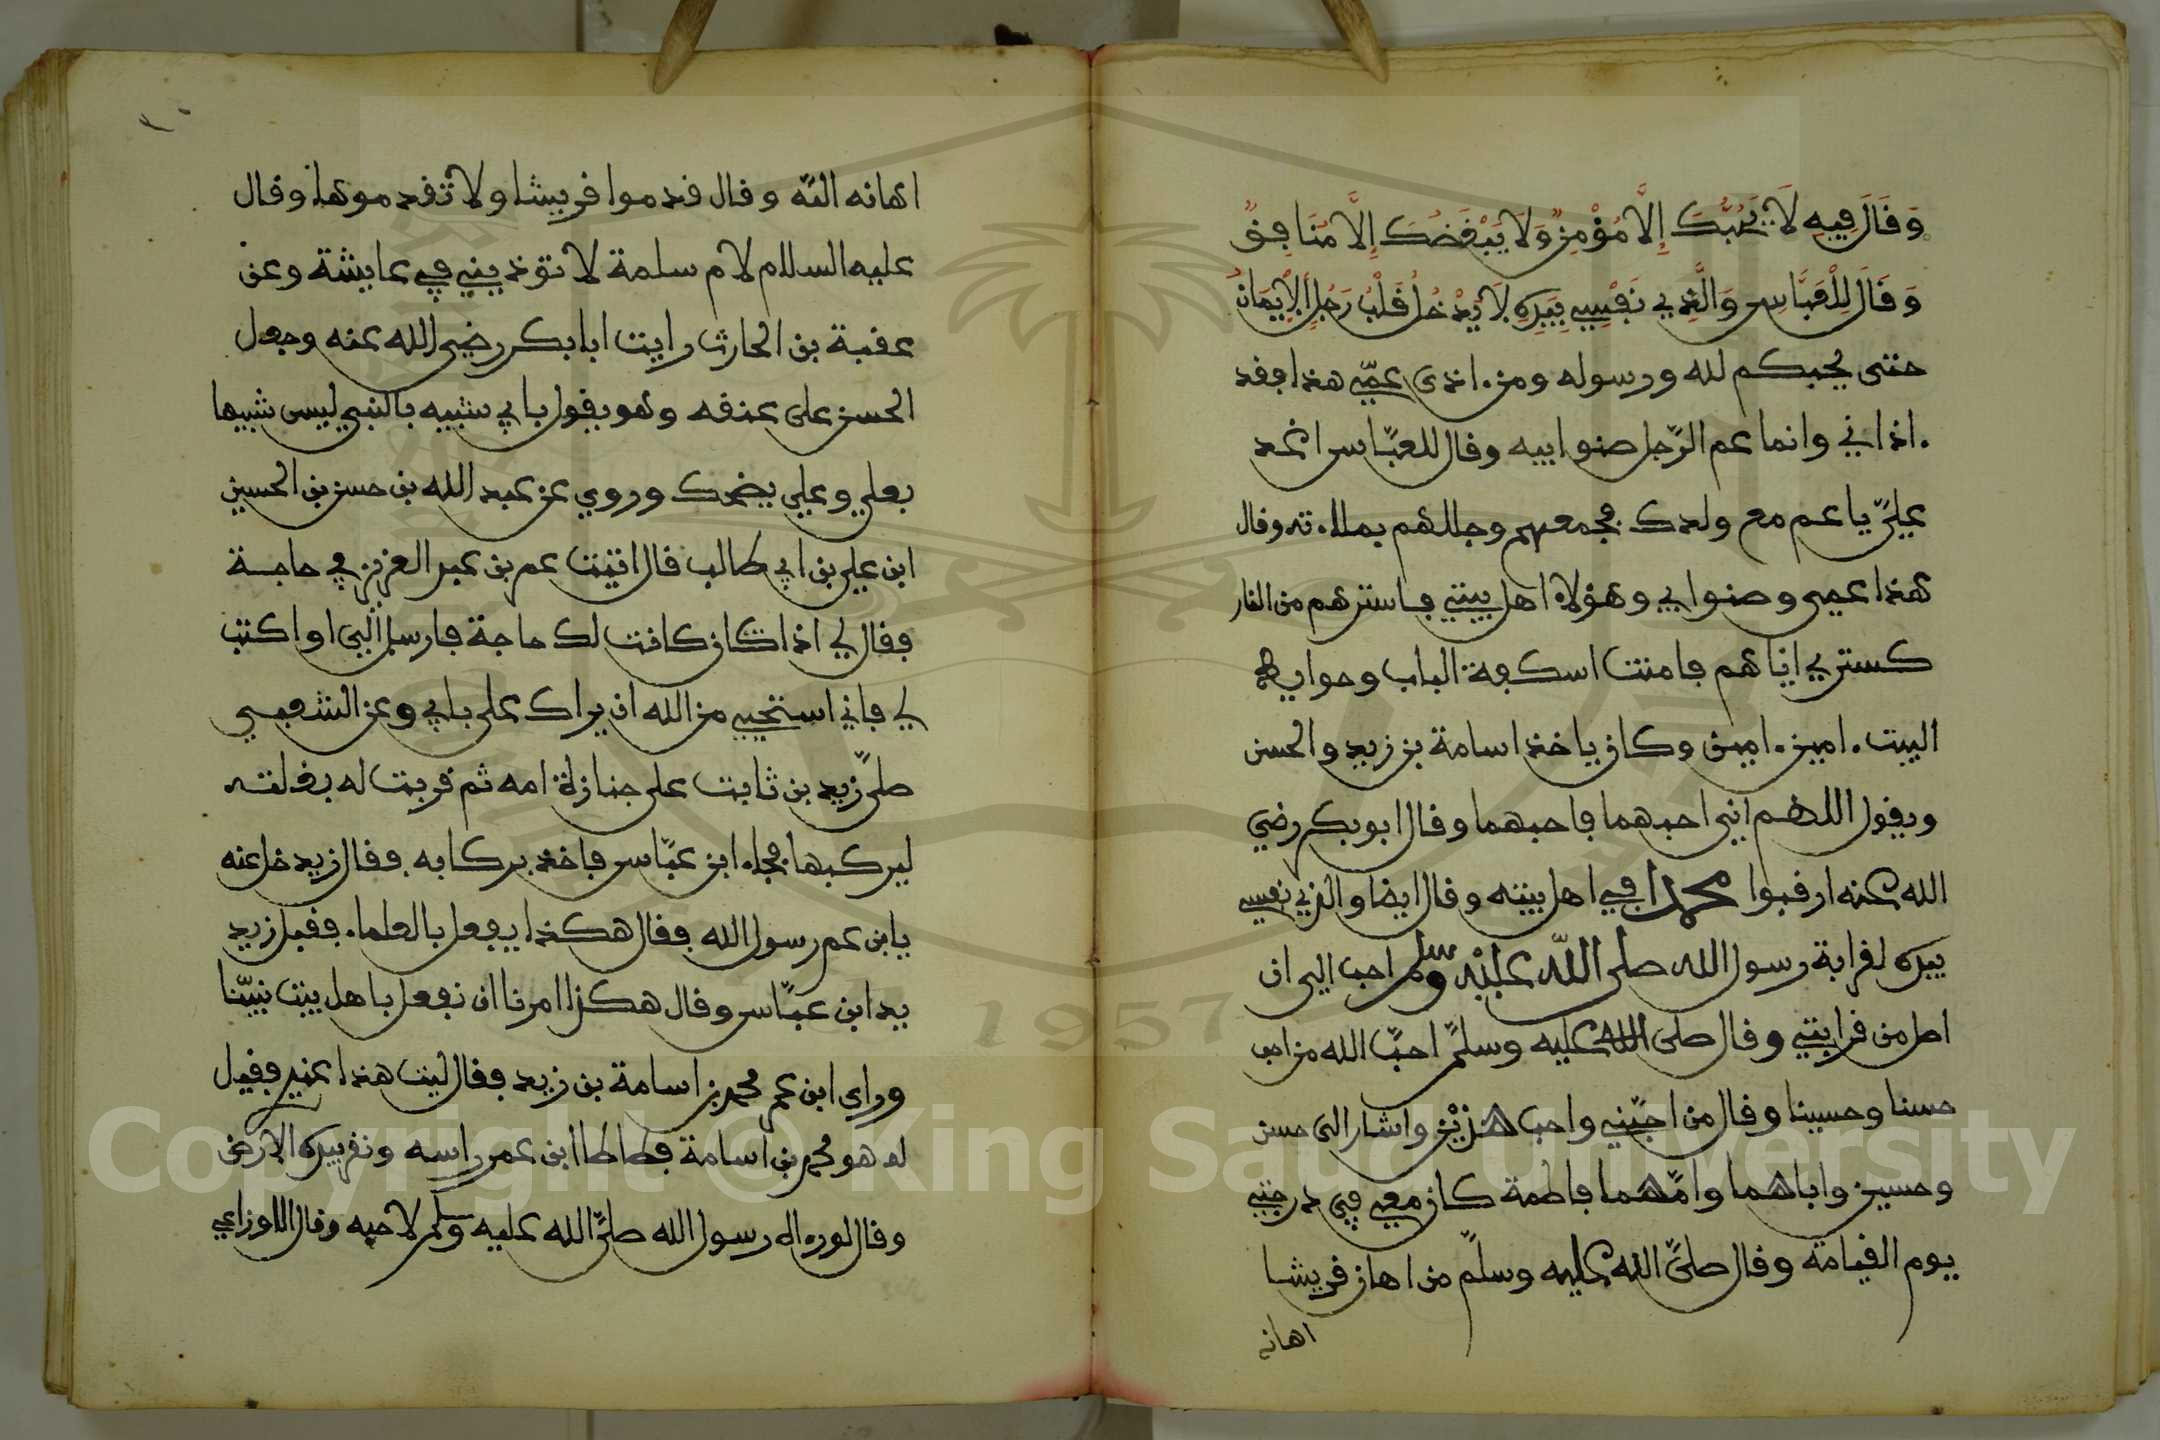 وَقَالَ فِيهِ لَا يُحِبُّكَ إِلَّا مُؤْمِنٌ وَلَا يَبْغَضُكَ إِلَّا مُنَافِقٌ
وَقَالَ لِلْعَبَّاسِ وَالَّذِي نَفْسِي بِيَدِهِ لَا يَدْخُلُ قَلْبَ رَجُلٍ الْإِيمَانُ
حتى يحبكم لله ورسوله ومن اذى عمّي هذا فقد
اذاني وانما عم الرّجل صنو ابيه وقال للعبّاس اغد
عليّ يا عم مع ولدك فجمعهم وجللهم بملاءته وقال
هذا عمي وصنو ابي وهؤلاء اهل بيتي فاستزهم من النار
كستري اياهم فامنت اسكفة الباب وحوايط
البيت امين امين وكان ياخذ اسامة بن زيد والحسن
ويقول اللهم اني احبهما فاحبهما وقال ابو بكر رضي
الله عنه ارقبوا محمدا في اهل بيته وقال ايضا والذي نفسي
بيده لقرابة رسول الله صلى الله عليه وسلم احب الي ان
اصل من قرابتي وقال صلى الله عليه وسلم احبّ الله من احب
حسنا وحسينا وقال من احبّني واحب هذين واشار الى حسن
وحسين واباهما وامّهما فاطمة كان معي في درجتي
يوم القيامة وقال صلىّ الله عليه وسلّم من اهان قريشا
اهانه
اهانه الله وقال قدموا قريشا ولا تقدموها وقال
عليه السلام لام سلمة لا توذيني في عايشة وعن
عقبة بن الحارث رايت ابا بكر رضي الله عنه وجعل
الحسن على عنقه وهو يقول بابي شبيه بالنبي ليس شبيها
بعلي وعلي يضحك وروي عن عبد الله بن حسن بن الحسين
ابن علي بن ابي طالب قال اتيت عمر بن عبد العزيز في حاجة
فقال لي اذا كان كانت لك حاجة فارسل الي او اكتب
لي فاني استحيي من الله ان يراك على بابي وعن الشعبي
صلىّ زيد بن ثابت على جنازة امه ثم قربت له بغلته
ليركبها فجاء ابن عبّاس فاخذ بركابه فقال زيد خل عنه
يابن عم رسول الله فقال هكذا يفعل بالعلماء فقبل زيد
يد ابن عبّاس وقال هكذا امرنا ان نفعل باهل بيت نبيّنا
وراى ابن عمر محمد بن اسامة بن زيد فقال ليت هذا عندي فقيل
له هو محمد بن اسامة فطاطا ابن عمر راسه ونقر بيده الارض
وقال لو راه رسول الله صلىّ الله عليه وسلم لاحبه وقال الاوزاعي